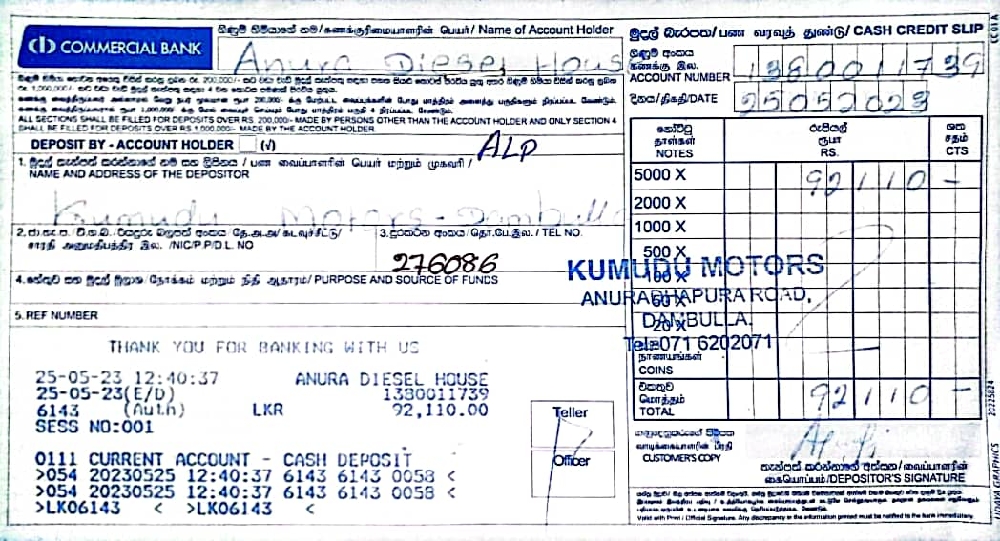 COMMERCIAL BANK
ගිණුම් හිමියාගේ නම/கணக்குரிமையாளரின் பெயர்/ Name of Account Holder
Anura Diesel House
මුදල් බැරපත/பண வரவுத் துண்டு/ CASH CREDIT SLIP
ගිණුම් අංකය
கணக்கு இல.
ACCOUNT NUMBER 1380011739
දිනය/திகதி/DATE 25052023
ALL SECTIONS SHALL BE FILLED FOR DEPOSITS OVER RS. 200,000/- MADE BY PERSONS OTHER THAN THE ACCOUNT HOLDER AND ONLY SECTION 4
SHALL BE FILLED FOR DEPOSITS OVER RS 1,000,000/- MADE BY THE ACCOUNT HOLDER.
DEPOSIT BY - ACCOUNT HOLDER (√)
ALP
1. මුදල් තැන්පත් කරන්නාගේ නම සහ ලිපිනය / பண வைப்பாளரின் பெயர் மற்றும் முகவரி /
NAME AND ADDRESS OF THE DEPOSITOR
Kumudu Motors - Dambulla
சாரதி அனுமதிபத்திர இல. /NIC/P.P/D.L. NO
3. දුරකථන අංකය/தொ.பே.இல. / TEL NO.
276086
4. හේතුව සහ මුදල් මූලාශ්‍ර/நோக்கம் மற்றும் நிதி ஆதாரம்/ PURPOSE AND SOURCE OF FUNDS
5. REF NUMBER
නෝට්ටු
நாள்கள்
NOTES
රුපියල්
ரூபா
RS.
ශත
சதம்
CTS
5000 X 92110 -
2000 X
1000 X
500 X
100 X
50 X
20 X
நாணயங்கள்
COINS
එකතුව
மொத்தம்
TOTAL 92110 -
KUMUDU MOTORS
ANURADHAPURA ROAD,
DAMBULLA.
Tele:071 6202071
THANK YOU FOR BANKING WITH US
25-05-23 12:40:37 ANURA DIESEL HOUSE
25-05-23(E/D) 1380011739
6143 (Auth) LKR 92,110.00
SESS NO:001
0111 CURRENT ACCOUNT - CASH DEPOSIT
>054 20230525 12:40:37 6143 6143 0058 <
>054 20230525 12:40:37 6143 6143 0058 <
>LK06143 < >LK06143 <
Teller
Officer
வாடிக்கையாளரின் பிரதி
CUSTOMER'S COPY
තැන්පත් කරන්නාගේ අත්සන/வைப்பாளரின்
கையொப்பம்/DEPOSITOR'S SIGNATURE
Valid with Print / Official Signature. Any discrepancy in the information printed must be notified to the bank immediately.